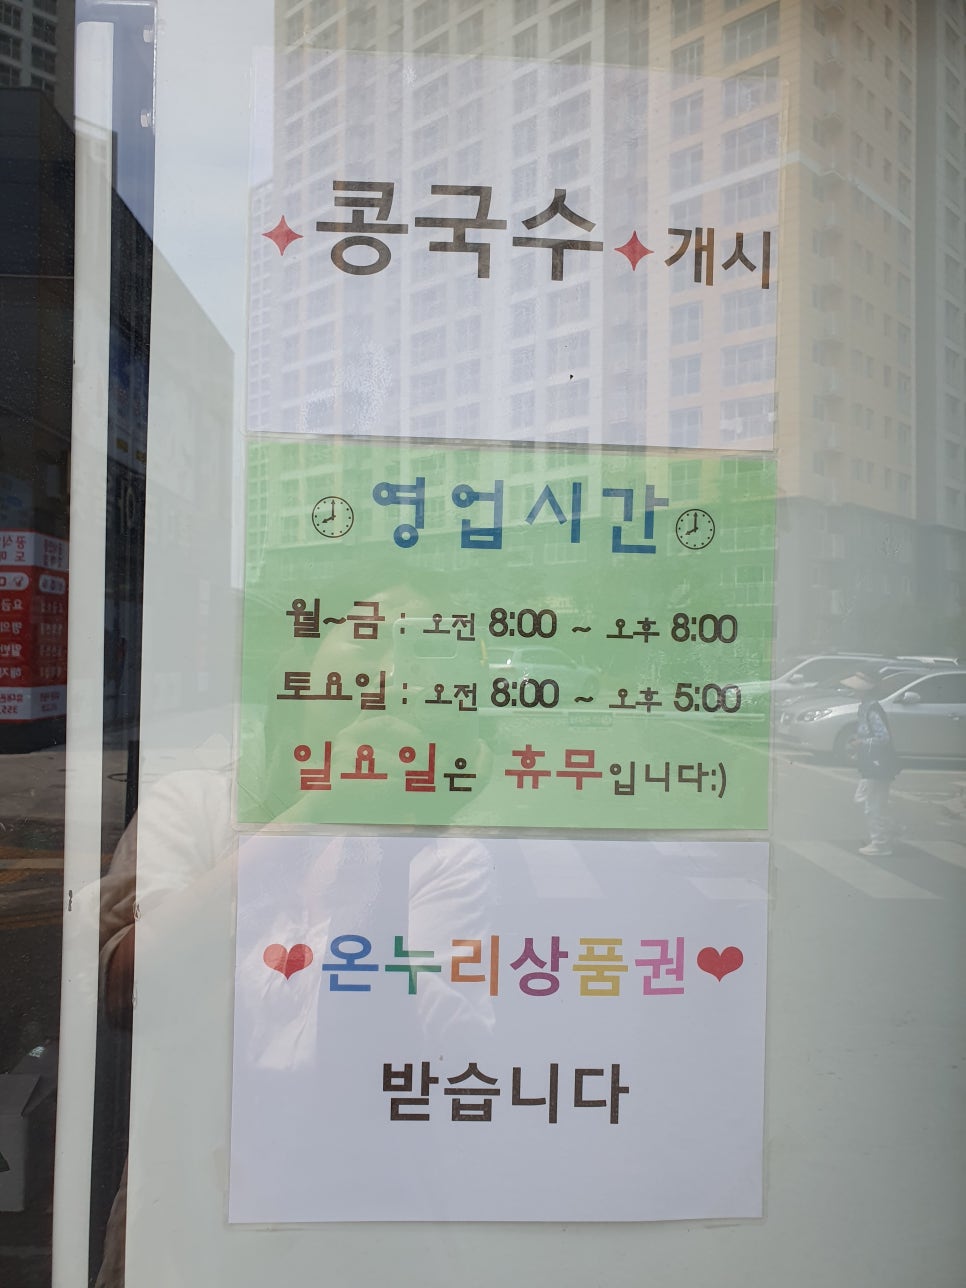 콩국수 개시
영업시간
월~금 : 오전 8:00 ~ 오후 8:00
토요일 : 오전 8:00 ~ 오후 5:00
일요일은 휴무입니다:)
온누리상품권
받습니다